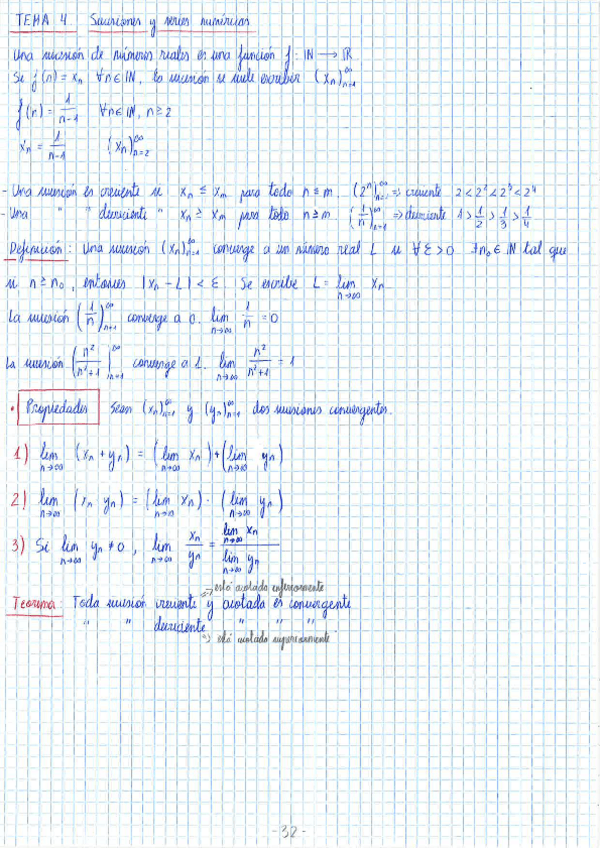 TEMA 4 Sucesiones y series numéricas
Una sucesión de números reales es una función f: ℕ → ℝ
Si f(n) = xₙ ∀n∈ℕ, la sucesión se suele escribir (xₙ)ₙ₌₁^∞
f(n) = 1/(n-1) ∀n∈ℕ, n≥2
xₙ = 1/(n-1) (xₙ)ₙ₌₂^∞
- Una sucesión es creciente si xₙ ≤ xₘ para todo n ≤ m. (2ⁿ)ₙ₌₁^∞ => creciente 2 < 2² < 2³ < 2⁴
- Una " " decreciente " xₙ ≥ xₘ para todo n ≥ m (1/n)ₙ₌₁^∞ => decreciente 1 > 1/2 > 1/3 > 1/4
Definición: Una sucesión (xₙ)ₙ₌₁^∞ converge a un número real L si ∀ε>0 ∃n₀∈ℕ tal que
si n ≥ n₀, entonces |xₙ - L| < ε. Se escribe L = lim n→∞ xₙ
La sucesión (1/n)ₙ₌₁^∞ converge a 0. lim n→∞ 1/n = 0
La sucesión (n²/(n²+1))ₙ₌₁^∞ converge a 1. lim n→∞ n²/(n²+1) = 1
• Propiedades Sean (xₙ)ₙ₌₁^∞ y (yₙ)ₙ₌₁^∞ dos sucesiones convergentes.
1) lim n→∞ (xₙ + yₙ) = (lim n→∞ xₙ) + (lim n→∞ yₙ)
2) lim n→∞ (xₙ yₙ) = (lim n→∞ xₙ) · (lim n→∞ yₙ)
3) Si lim n→∞ yₙ ≠ 0, lim n→∞ xₙ/yₙ = (lim n→∞ xₙ)/(lim n→∞ yₙ)
=> está acotada inferiormente
Teorema: Toda sucesión creciente y acotada es convergente
" " decreciente " " "
=> está acotada superiormente
- 32 -